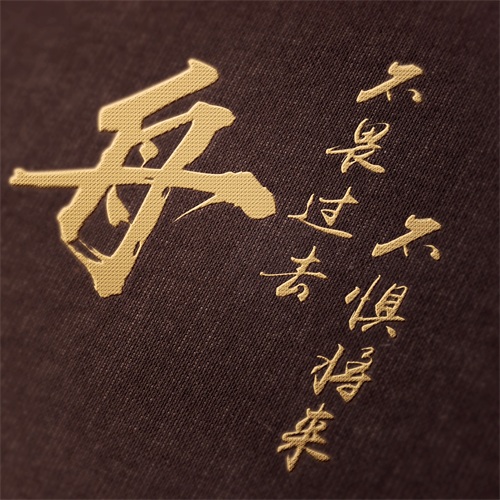 不畏过去
不惧将来